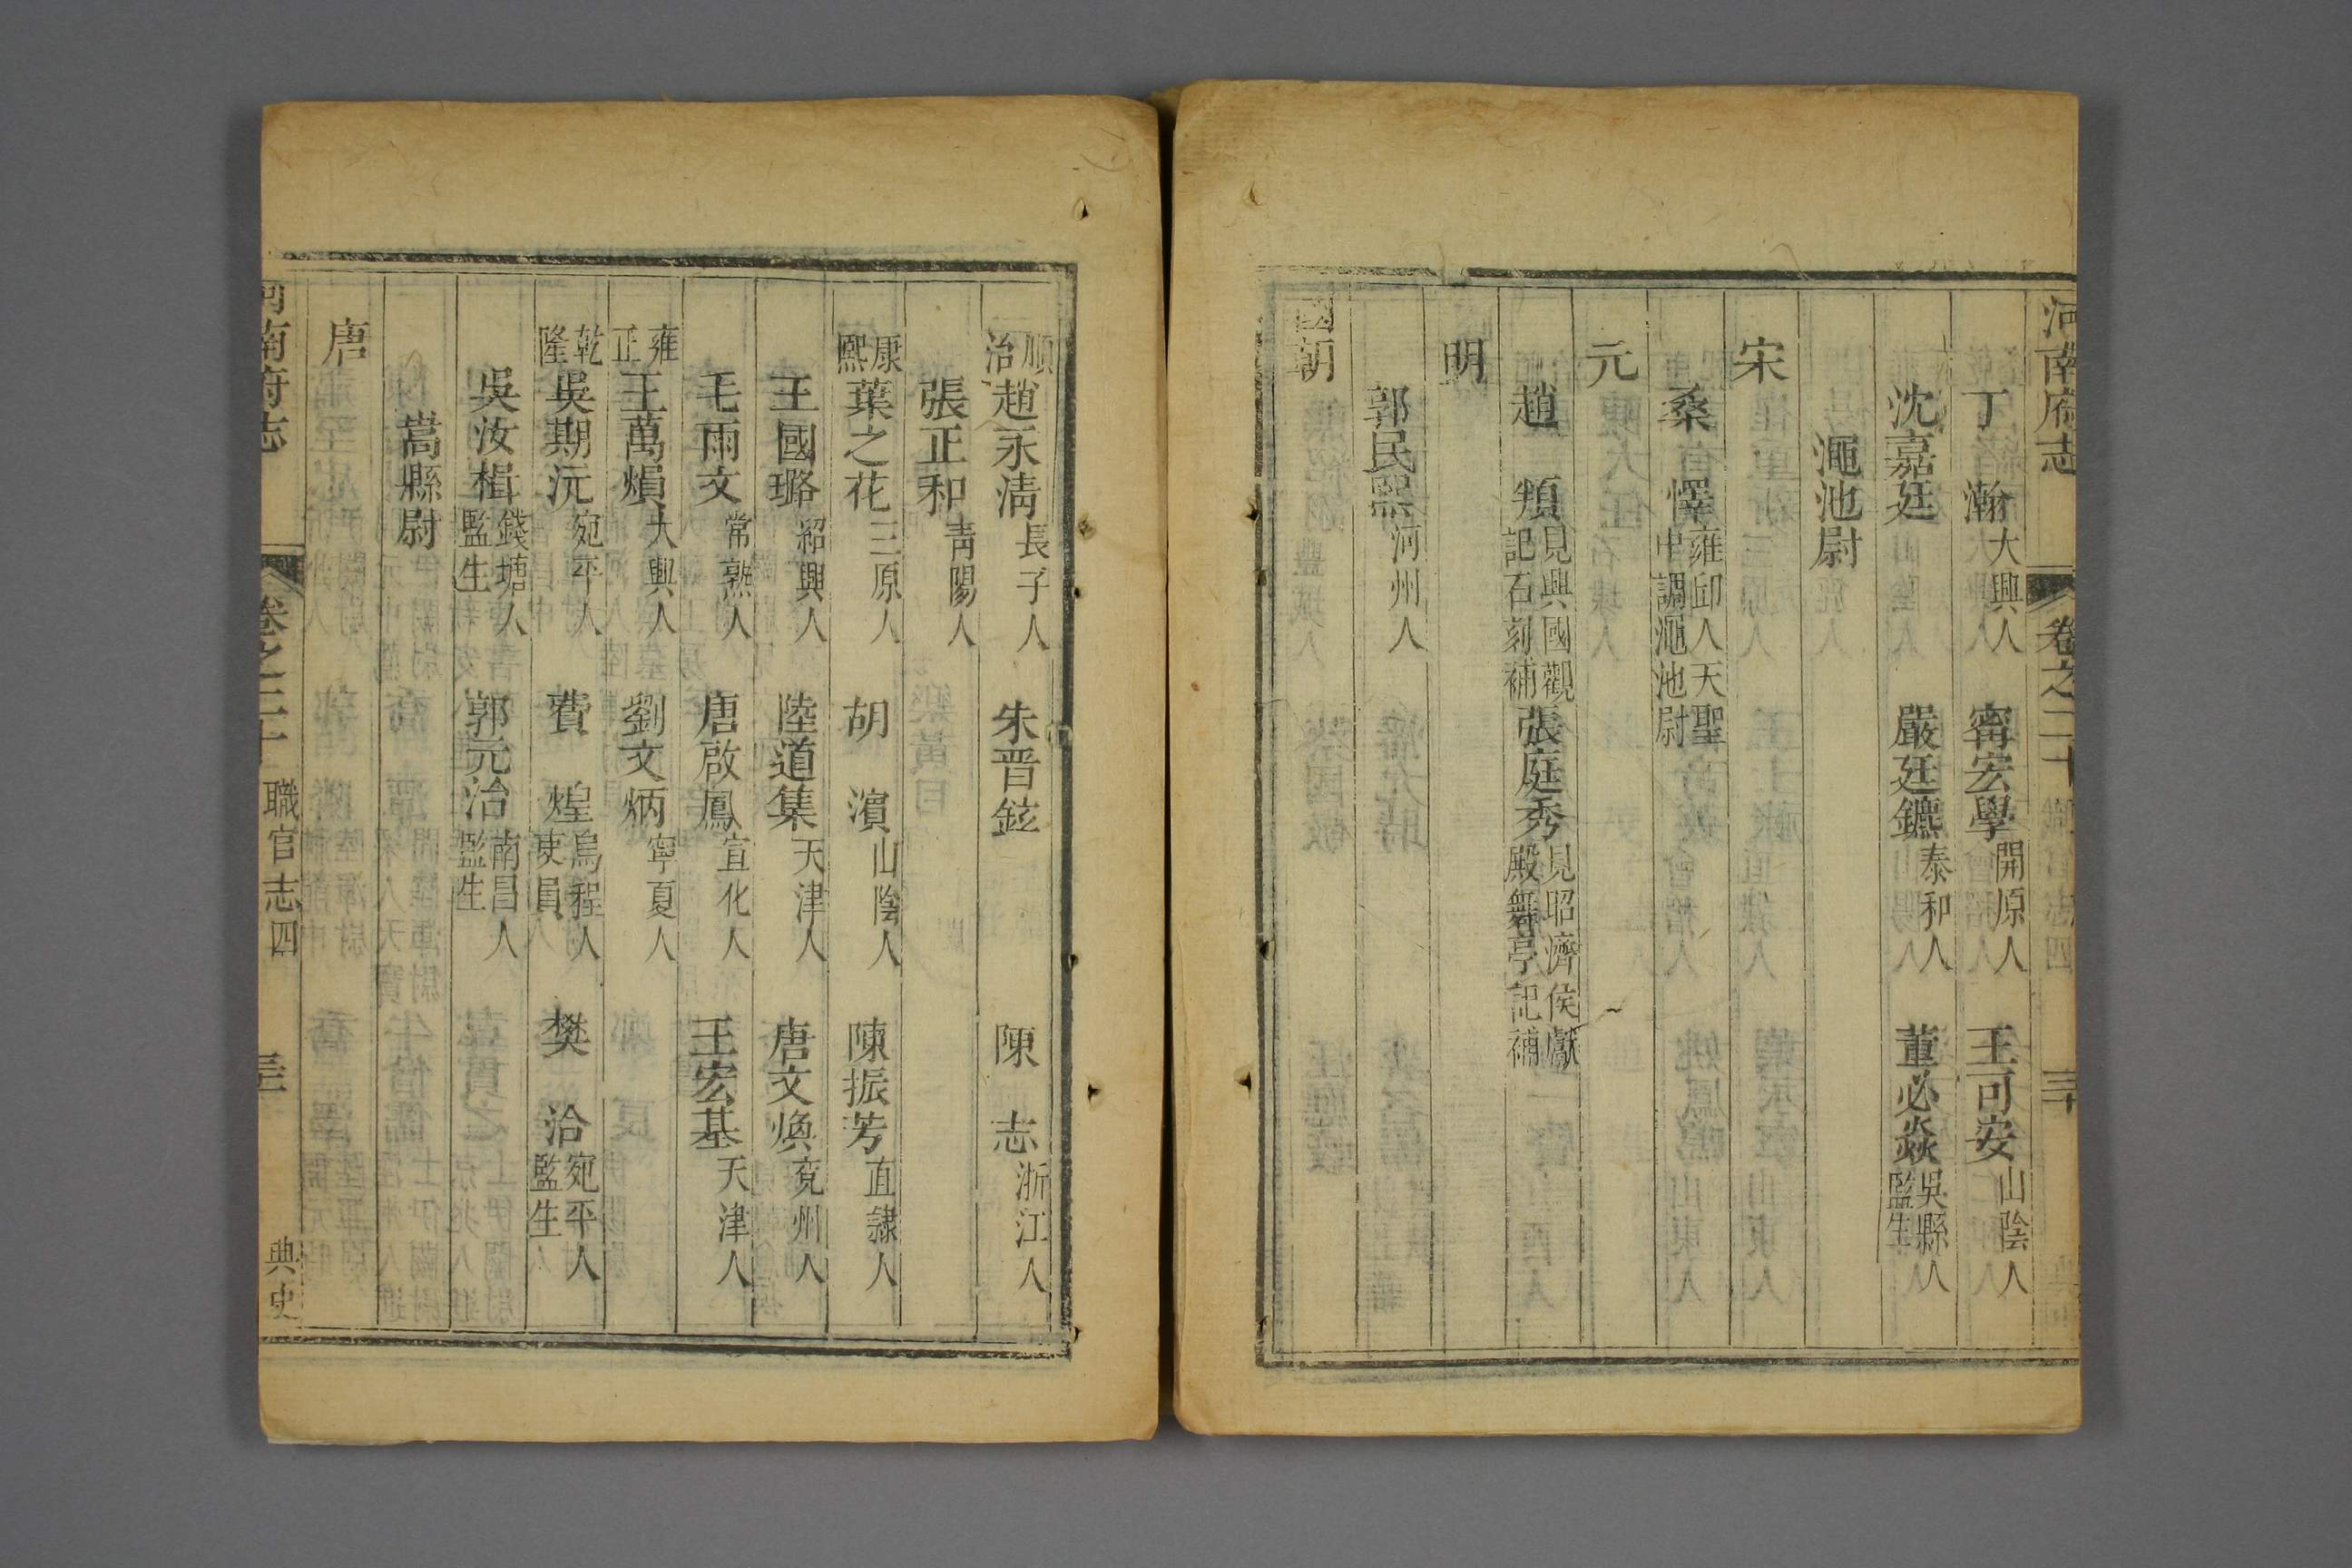 河南府志 卷之二十 職官志四 三十
丁瀚 大興人 甯宏學 開原人 王可安 山陰人
沈嘉廷 嚴廷鑣 泰和人 董必焱 吳縣人 監生
澠池尉
宋
桑懌 雍邱人天聖 中調澠池尉
元
趙頫 見興國觀 記石刻補 張庭秀 見昭濟侯獻 殿舞亭記補
明
郭民熙 河州人
國朝
順治 趙永清 長子人 朱晋鉉 陳志 浙江人
張正和 青陽人
康熙 葉之花 三原人 胡濵 山陰人 陳振芳 直隸人
王國璐 紹興人 陸道集 天津人 唐文煥 兖州人
毛雨文 常熟人 唐啟鳳 宣化人 王宏基 天津人
雍正 王萬熉 大興人 劉文炳 寧夏人
乾隆 吳期沅 宛平人 費煌 烏程人 吏員 樊洽 宛平人 監生
吳汝楫 錢塘人 監生 郭元治 南昌人 監生
嵩縣尉
唐
河南府志 卷之二十 職官志四 典史